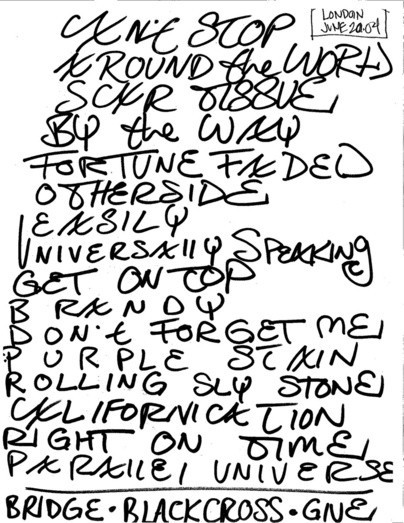 LONDON
JUNE 20.04
CAN'T STOP
AROUND the WORLD
SCAR TISSUE
BY the WAY
FORTUNE FADED
OTHERSIDE
EASILY
UNIVERSALLY SPEAKING
GET ON TOP
BRANDY
DON'T FORGET ME
PURPLE STAIN
ROLLING SLY STONE
CALIFORNICATION
RIGHT ON TIME
PARALLEL UNIVERSE
BRIDGE · BLACKCROSS · GIVE